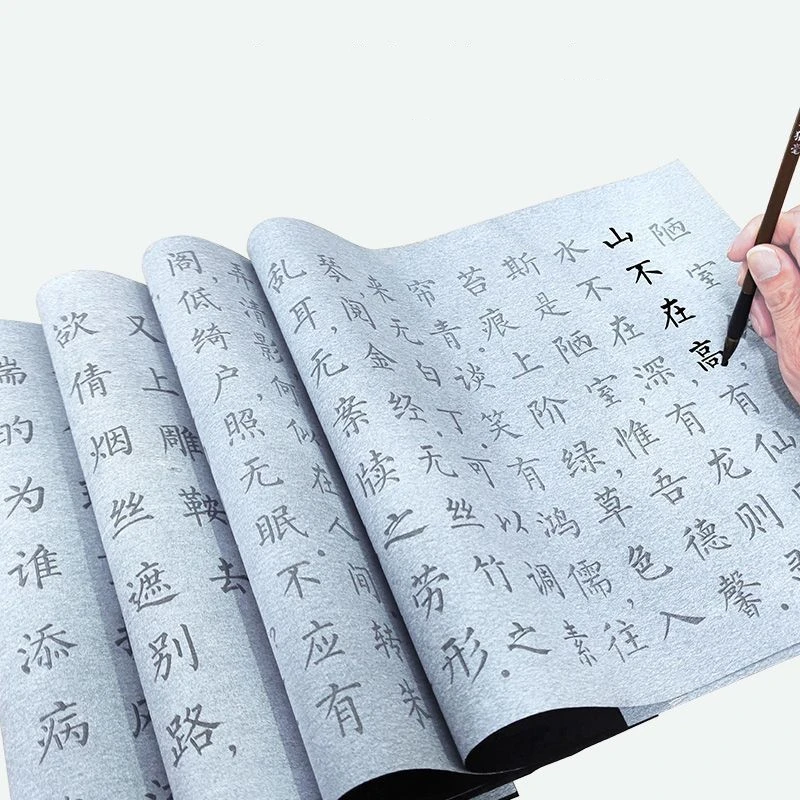 陋室
山不在高,有仙
水不在深,有龙则
斯是陋室,惟吾德馨.
苔痕上阶绿,草色入
帘青.谈笑有鸿儒,往
来无白丁.可以调素
琴,阅金经.无丝竹之
乱耳,无案牍之劳形.
弄清影,何似在人间.转朱
阁,低绮户照无眠.不应有
又上雕鞍去
欲倩烟丝遮别路,
端的为谁添病